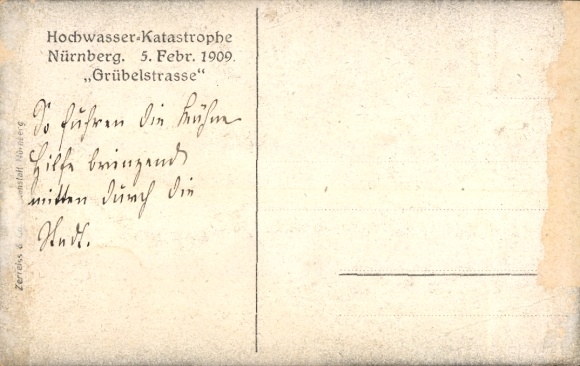 Hochwasser-Katastrophe
Nürnberg. 5. Febr. 1909.
„Grübelstrasse“
So fuhren die Kähne
Hilfe bringend
mitten durch die
Stadt.
Zerreiss & Nürnberg